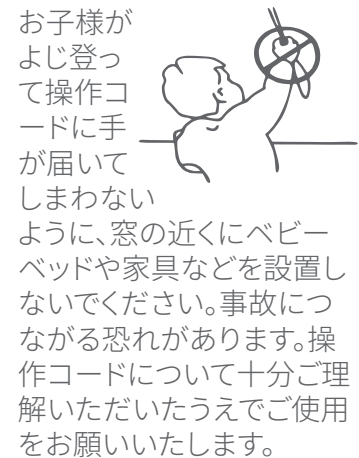 お子様が
よじ登っ
て操作コ
ードに手
が届いて
しまわない
ように、窓の近くにベビー
ベッドや家具などを設置し
ないでください。事故につ
ながる恐れがあります。操
作コードについて十分ご理
解いただいたうえでご使用
をお願いいたします。